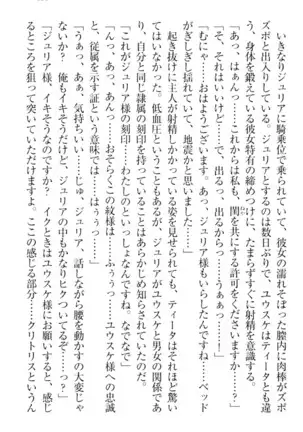 いきなりジュリアに騎乗位で乗られていて、彼女の濡れそぼった膣内に肉棒がズボ
ズボと出入りしている。ジュリアとするのは数日ぶりで、ユウスケはティータとも違
う、身体を鍛えている彼女特有の締めつけに、たまらずすぐに射精を意識する。
「あっ、はぁんっ……これからは私も、閨を共にする許可をくださいますか……？」
「そ、それはいいけど……で、出る、出るからっ……あっ……！」
「むにゃ……おはようございます。あ、ジュリア様もいらしたんですね……ベッド
がぎしぎし揺れていて、地震かと思いました……」
起き抜けに主人が射精している姿を見せられても、ティータはそれほど驚い
ていなかった。低血圧ということもあるが、ジュリアがユウスケと男女の関係であ
り、自分と同じ隷属の刻印を持っていることはあらかじめ知らされていたのだ。
「これがジュリア様の刻印……わたしのといっしょなんですね。なでなで」
「ひあっ……く、くすぐったい……ふぅっ……ユウスケ様への忠誠
と、従属を示す証という意味では……はうぅっ……」
「うぁっ、ああ、気持ちいい……じゅ、ジュリア、話しながら腰を動かすの大変じゃ
ないか？　俺もイキそうだけど、ジュリアの中もかなりヒクついてるぞ……っ？」
「ジュリア様、イキそうなのですか？　イクときはユウスケ様にお願いすると、感じ
るところを狙って突いていただけますよ。ここの感じる部分……クリトリスというん